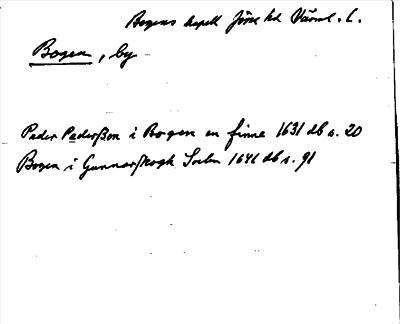 Bogens kapell Jösse hd Värml. L.
Bogen, by
Peder Pederßon i Bogen en finne 1631 db s. 20
Bogen i Gunnarßkogh Sochn 1641 db s. 91